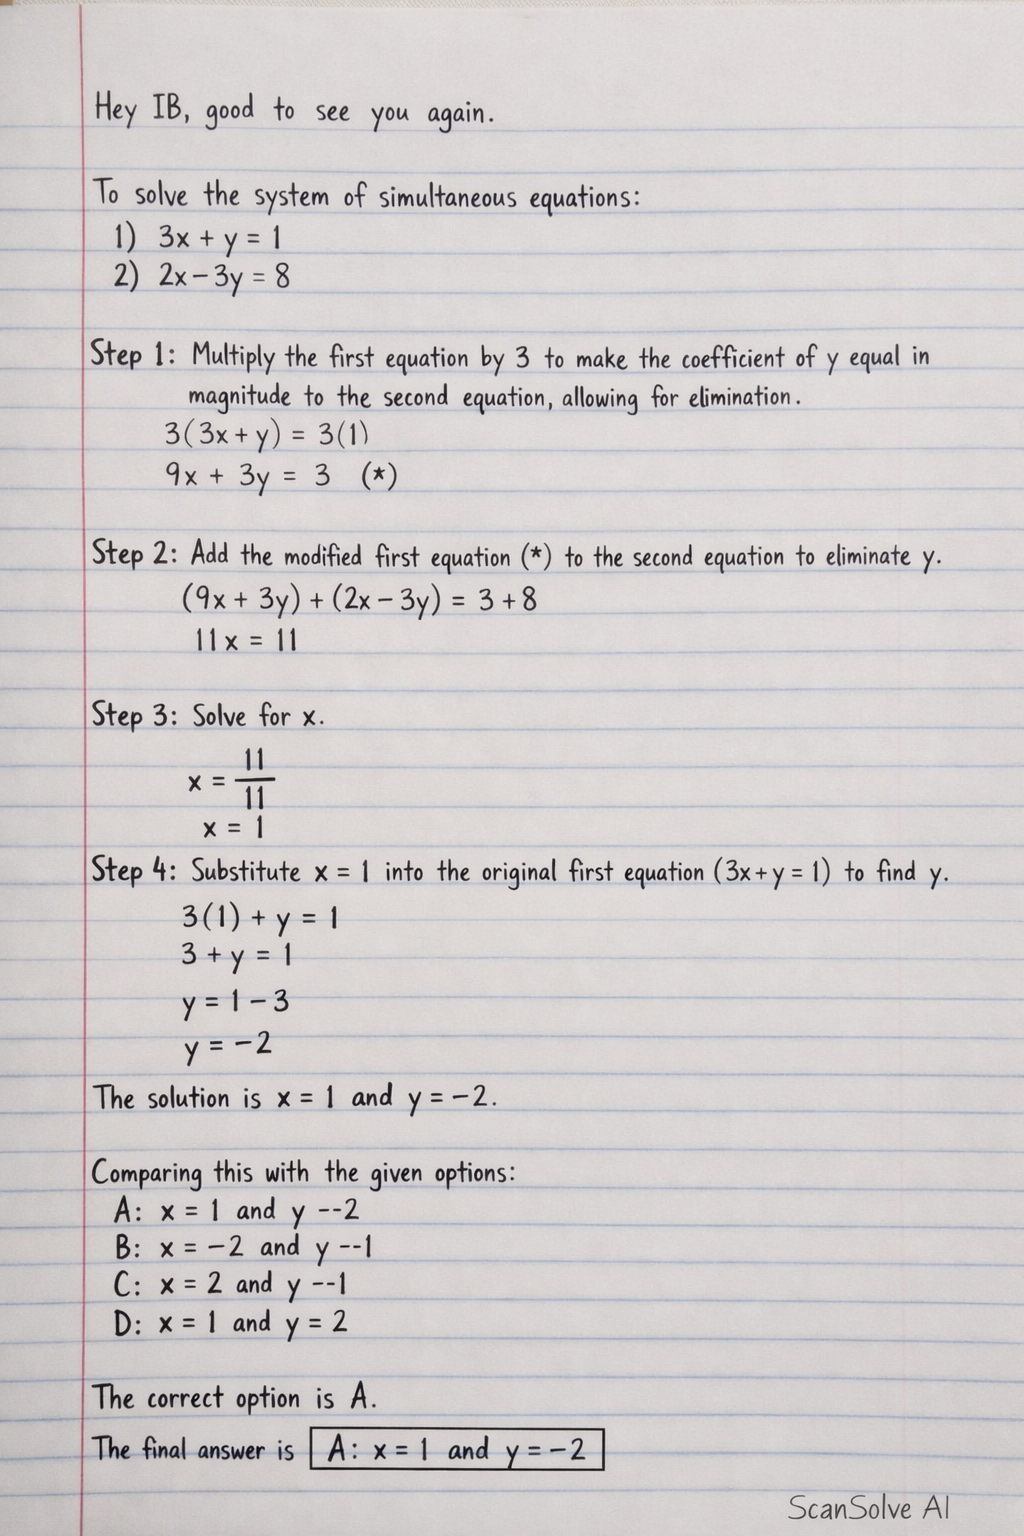 Hey IB, good to see you again.
To solve the system of simultaneous equations:
1) 3x + y = 1
2) 2x - 3y = 8
Step 1: Multiply the first equation by 3 to make the coefficient of y equal in
magnitude to the second equation, allowing for elimination.
3(3x + y) = 3(1)
9x + 3y = 3 (*)
Step 2: Add the modified first equation (*) to the second equation to eliminate y.
(9x + 3y) + (2x - 3y) = 3 + 8
11x = 11
Step 3: Solve for x.
x = 11/11
x = 1
Step 4: Substitute x = 1 into the original first equation (3x + y = 1) to find y.
3(1) + y = 1
3 + y = 1
y = 1 - 3
y = -2
The solution is x = 1 and y = -2.
Comparing this with the given options:
A: x = 1 and y --2
B: x = -2 and y --1
C: x = 2 and y --1
D: x = 1 and y = 2
The correct option is A.
The final answer is A: x = 1 and y = -2
ScanSolve AI